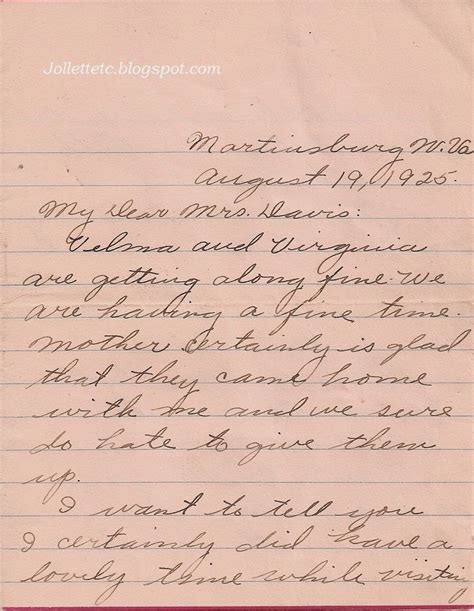 Jollettetc.blogspot.com
Martinsburg W. Va
August 19, 1925.
My Dear Mrs. Davis:
Velma and Virginia
are getting along fine. We
are having a fine time.
Mother certainly is glad
that they came home
with me and we sure
do hate to give them
up.
I want to tell you
I certainly did have a
lovely time while visiting